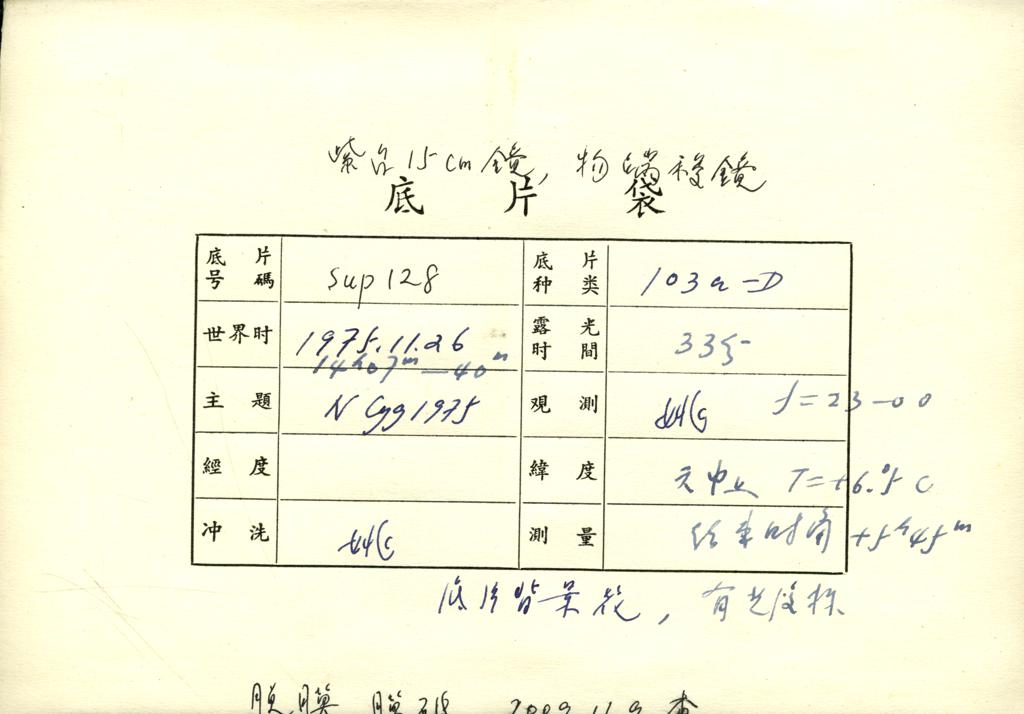 紫台15cm鏡, 物端棱鏡
底片袋
底片号碼 Sup 128 底片种类 103a-D
世界时 1975.11.26 露光时間 33分
14h07m—40m
主題 N Cyg 1975 观測 f=23-00
經度 緯度 天中上 T=+6.°5 C
冲洗 測量 结束时角 +5h45m
底片背景
脱膜 膜 2009.11.9 查